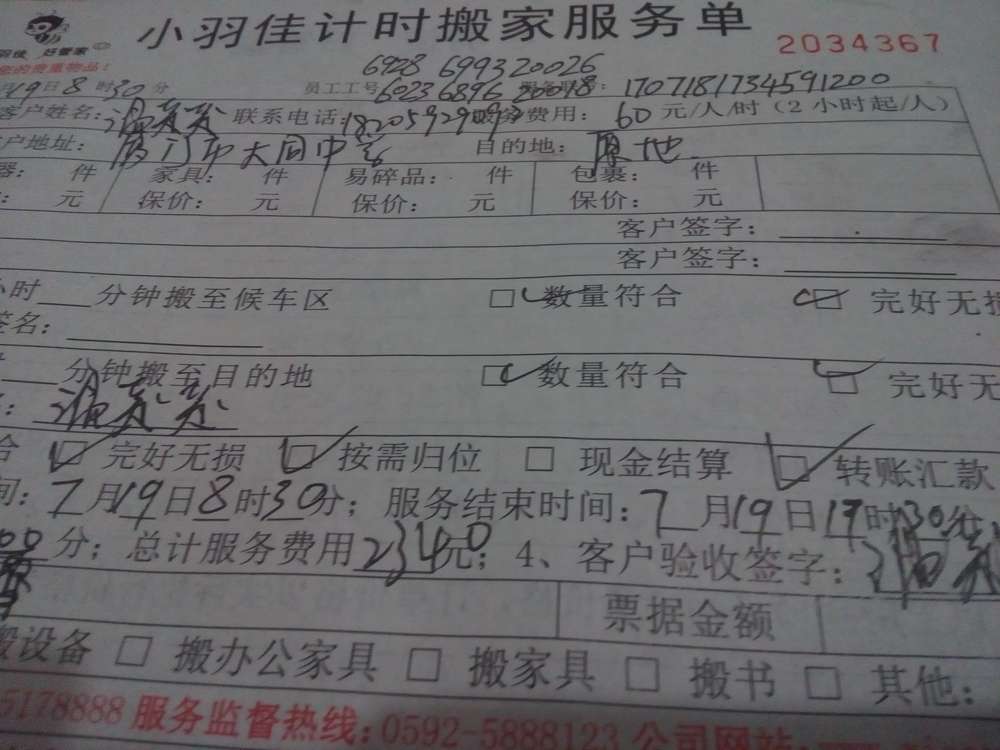 小羽佳计时搬家服务单
2034367
好管家
您的贵重物品！
6928 699320026
月19日8时30分 员工工号 6023 6896 20018 : 1707181734591200
客户姓名: 联系电话: 费用: 60元/人/时（2小时起/人）
户地址: 厦门市大同中学 目的地: 原地
器: 件 家具: 件 易碎品: 件 包裹: 件
: 元 保价: 元 保价: 元 保价: 元
客户签字:
客户签字:
小时 分钟搬至候车区 □数量符合 □ 完好无损
签名:
分钟搬至目的地 □数量符合 □ 完好无
合 □ 完好无损 □ 按需归位 □ 现金结算 □ 转账汇款
间: 7月19日8时30分; 服务结束时间: 7月19日17时30分
00分; 总计服务费用2340元; 4、客户验收签字:
票据金额
搬设备 □ 搬办公家具 □ 搬家具 □ 搬书 □ 其他:
5178888 服务监督热线:0592-5888123 公司网站